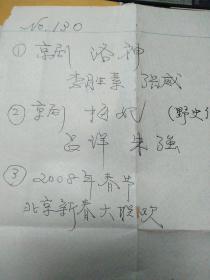 No.130
① 京剧 洛神
李胜素 张威
② 京剧 梅妃 (野史
吕洋 朱强
③ 2008年春节
北京新春大联欢